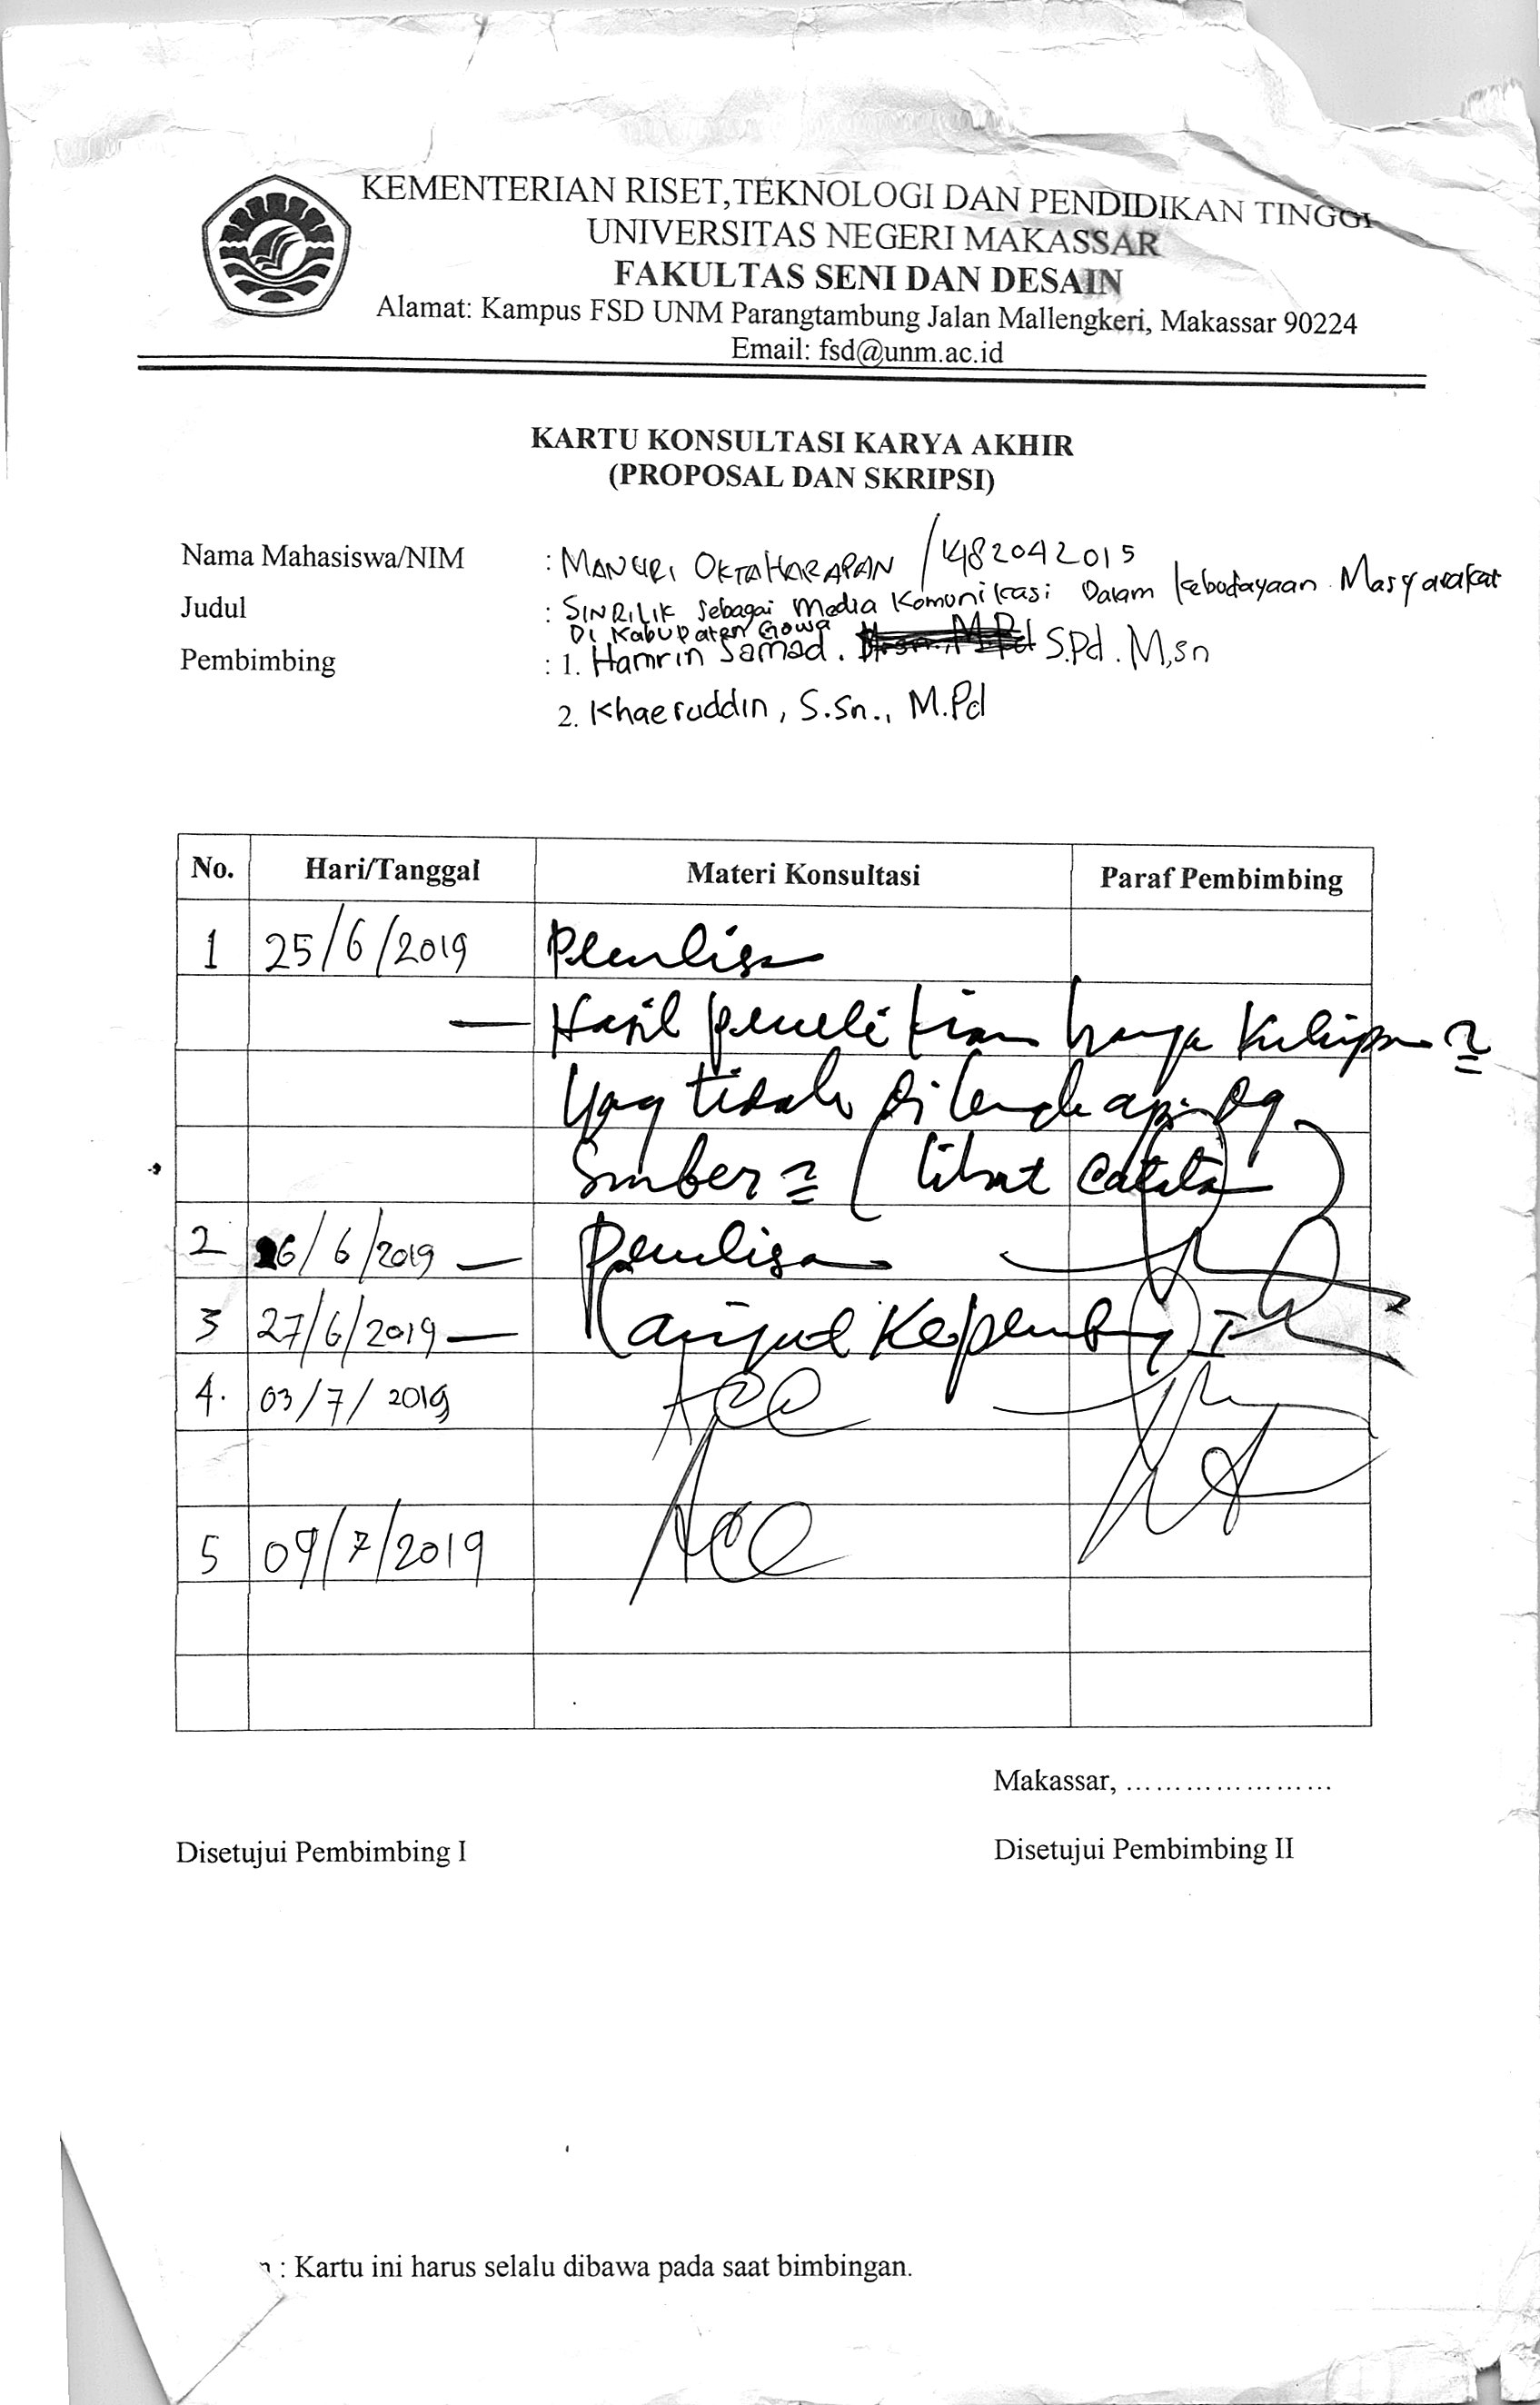 KEMENTERIAN RISET,TEKNOLOGI DAN PENDIDIKAN TINGGI
UNIVERSITAS NEGERI MAKASSAR
FAKULTAS SENI DAN DESAIN
Alamat: Kampus FSD UNM Parangtambung Jalan Mallengkeri, Makassar 90224
Email: fsd@unm.ac.id
KARTU KONSULTASI KARYA AKHIR
(PROPOSAL DAN SKRIPSI)
Nama Mahasiswa/NIM : OKTAHARAPAN / 1482042015
Judul : SINRILIK Sebagai Media Komunikasi Dalam kebudayaan Masyarakat
Di Kabupaten Gowa
Pembimbing : 1. Hamrin Samad. S.Pd. M,sn
2. Khaeruddin, S.Sn., M.Pd
No. Hari/Tanggal Materi Konsultasi Paraf Pembimbing
1 25/6/2019 Penulisan
— Hasil penelitian hanya kutipan2
yang tidak dilengkapi dg
Sumber2 (lihat catatan)
2 26/6/2019 — Penulisan
3 27/6/2019 — Lanjut Ke pembimbing I
4. 03/7/2019 ACC
5 09/7/2019 ACC
Makassar, .....................
Disetujui Pembimbing I Disetujui Pembimbing II
: Kartu ini harus selalu dibawa pada saat bimbingan.